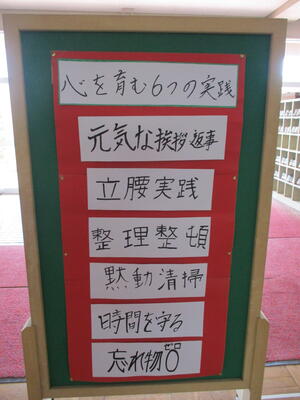 心を育む6つの実践
元気な挨拶・返事
立腰実践
整理整頓
黙動清掃
時間を守る
忘れ物ゼロ